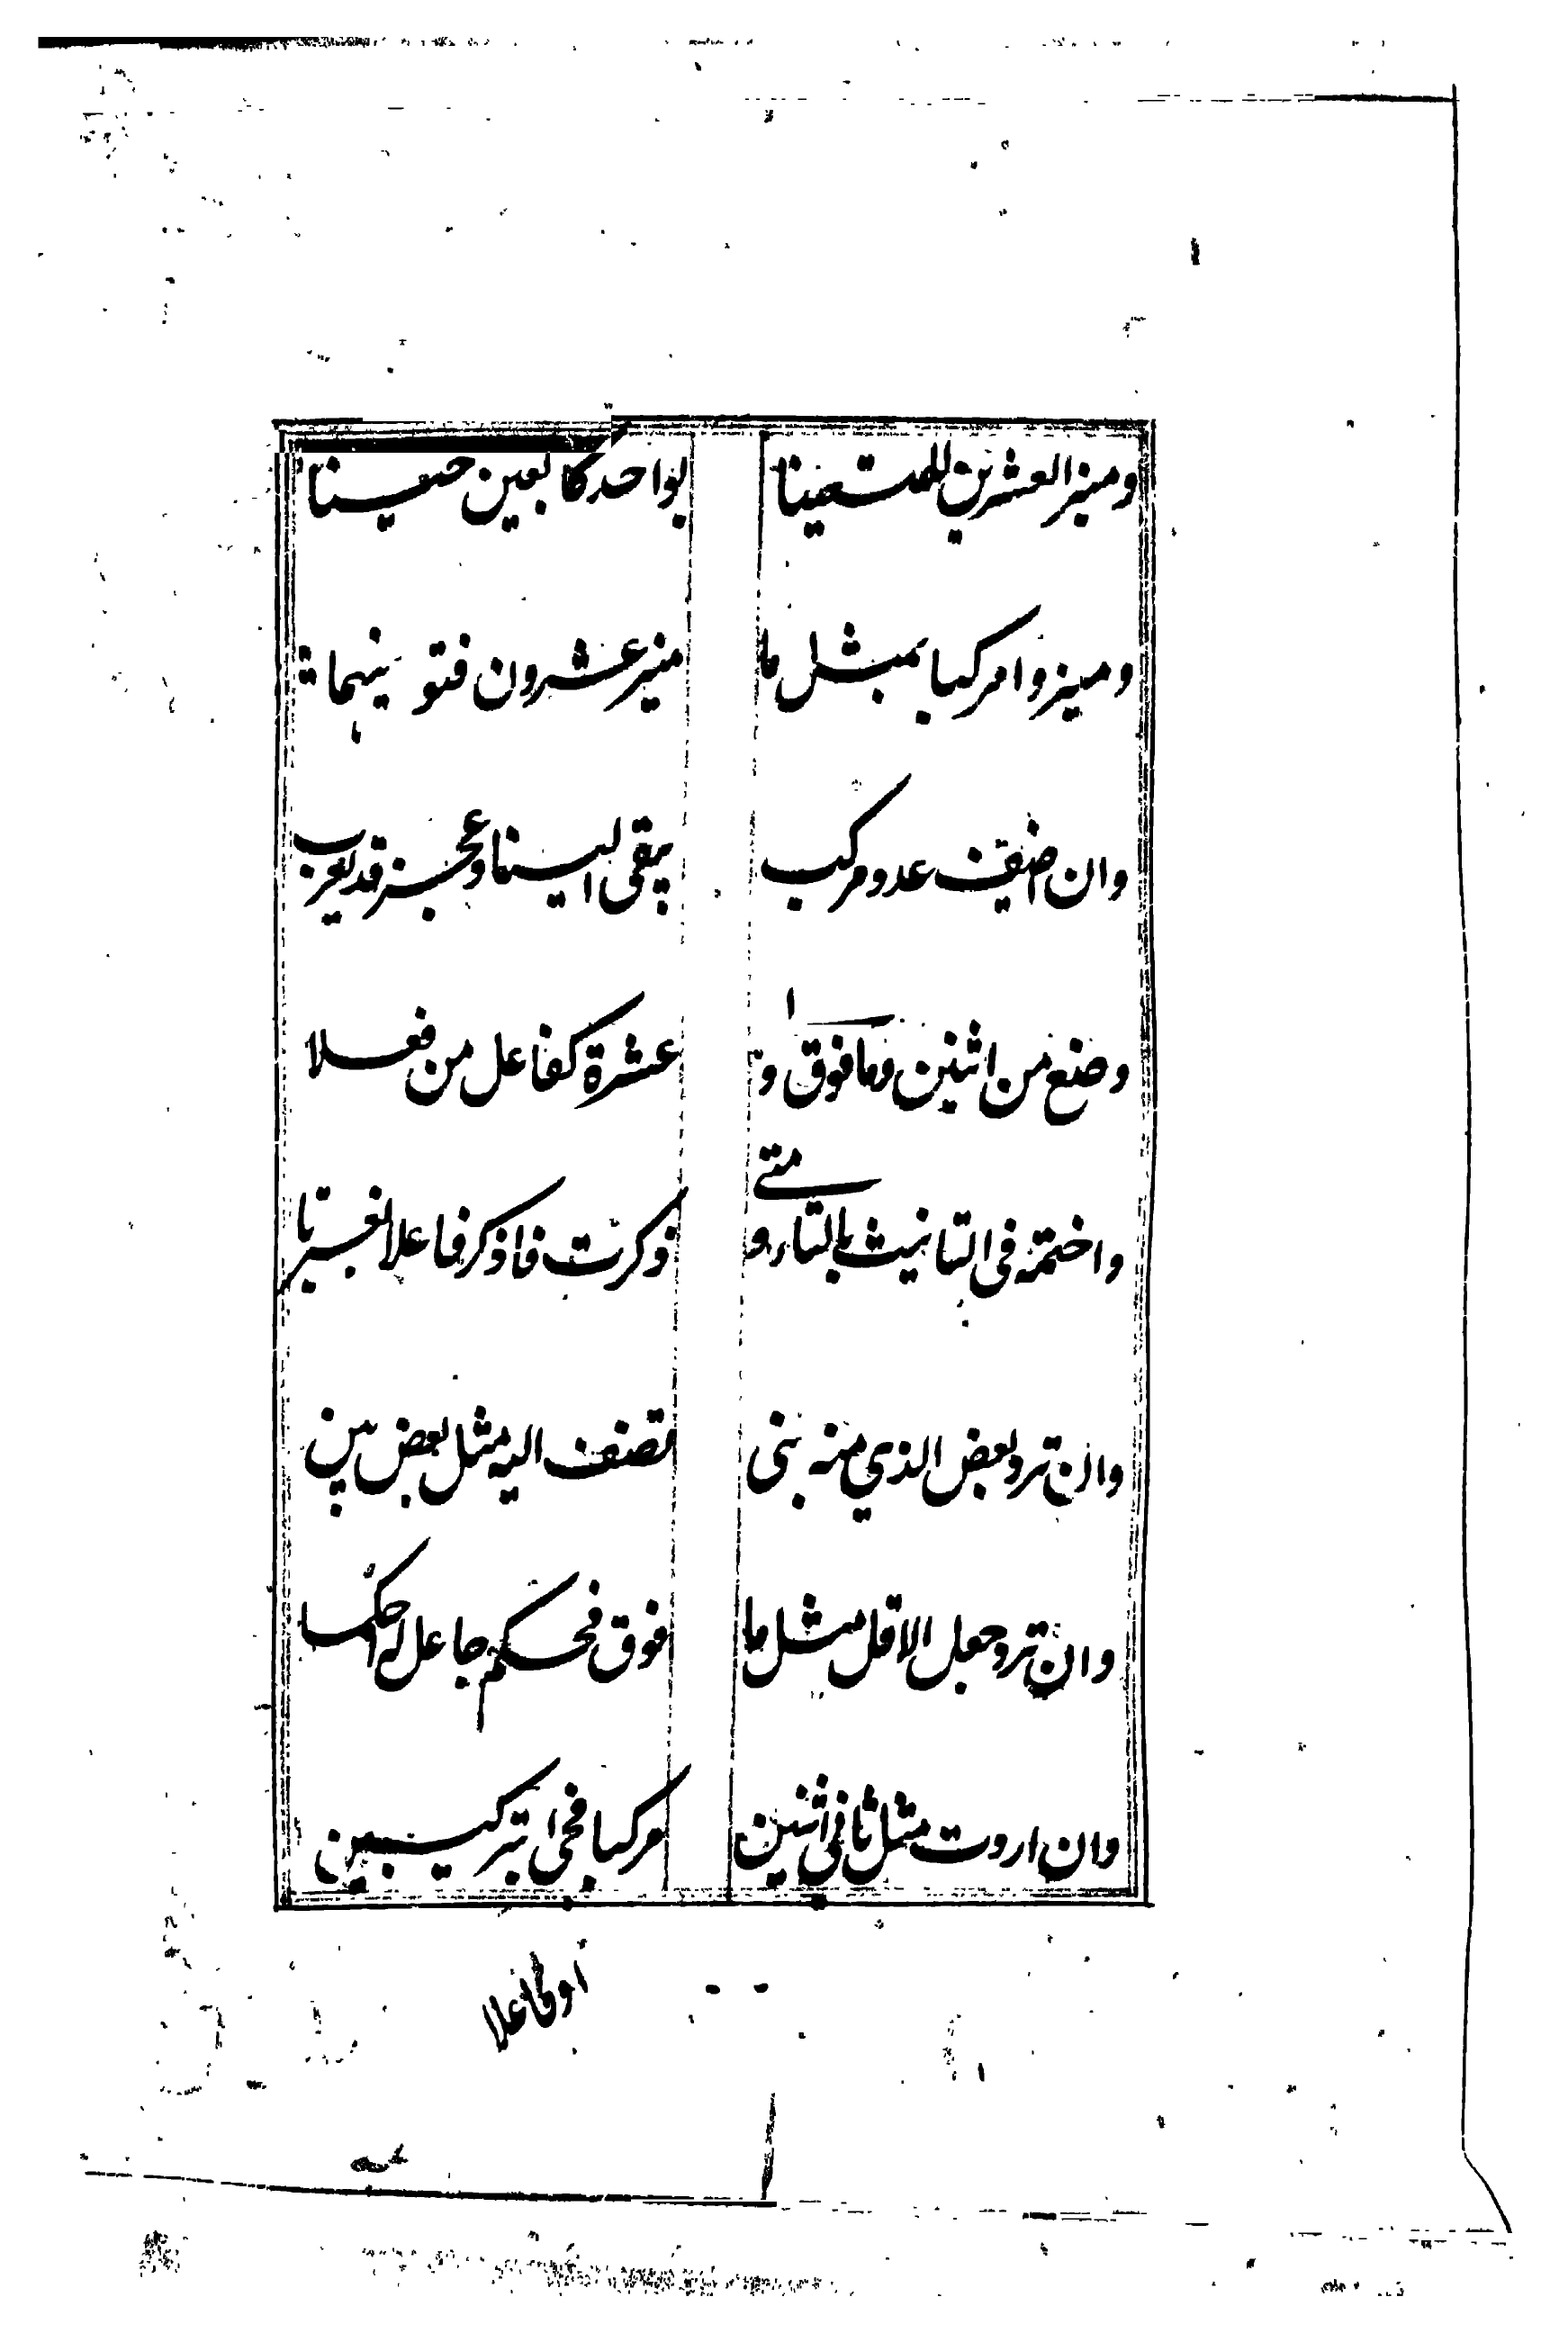 وميز العشرين للتسعينا بواحد كاربعين حينا
وميزوا مركبا بمثل ما ميز عشرون فسوينهما
وان اضيف عدد مركب يبقى البنا وعجز قد يعرب
وصغ من اثنين وما فوق الى عشرة كفاعل من فعلا
واختمه في التانيث بالتاء ومتى ذكرت فاذكر فاعلا بغير تا
وان ترد بعض الذي منه بنى تضف اليه مثل بعض بين
وان ترد جعل الاقل مثل ما فوق فحكم جاعل له احكما
وان اردت مثل ثاني اثنين مركبا فجئ بتركيبين
او فاعلا